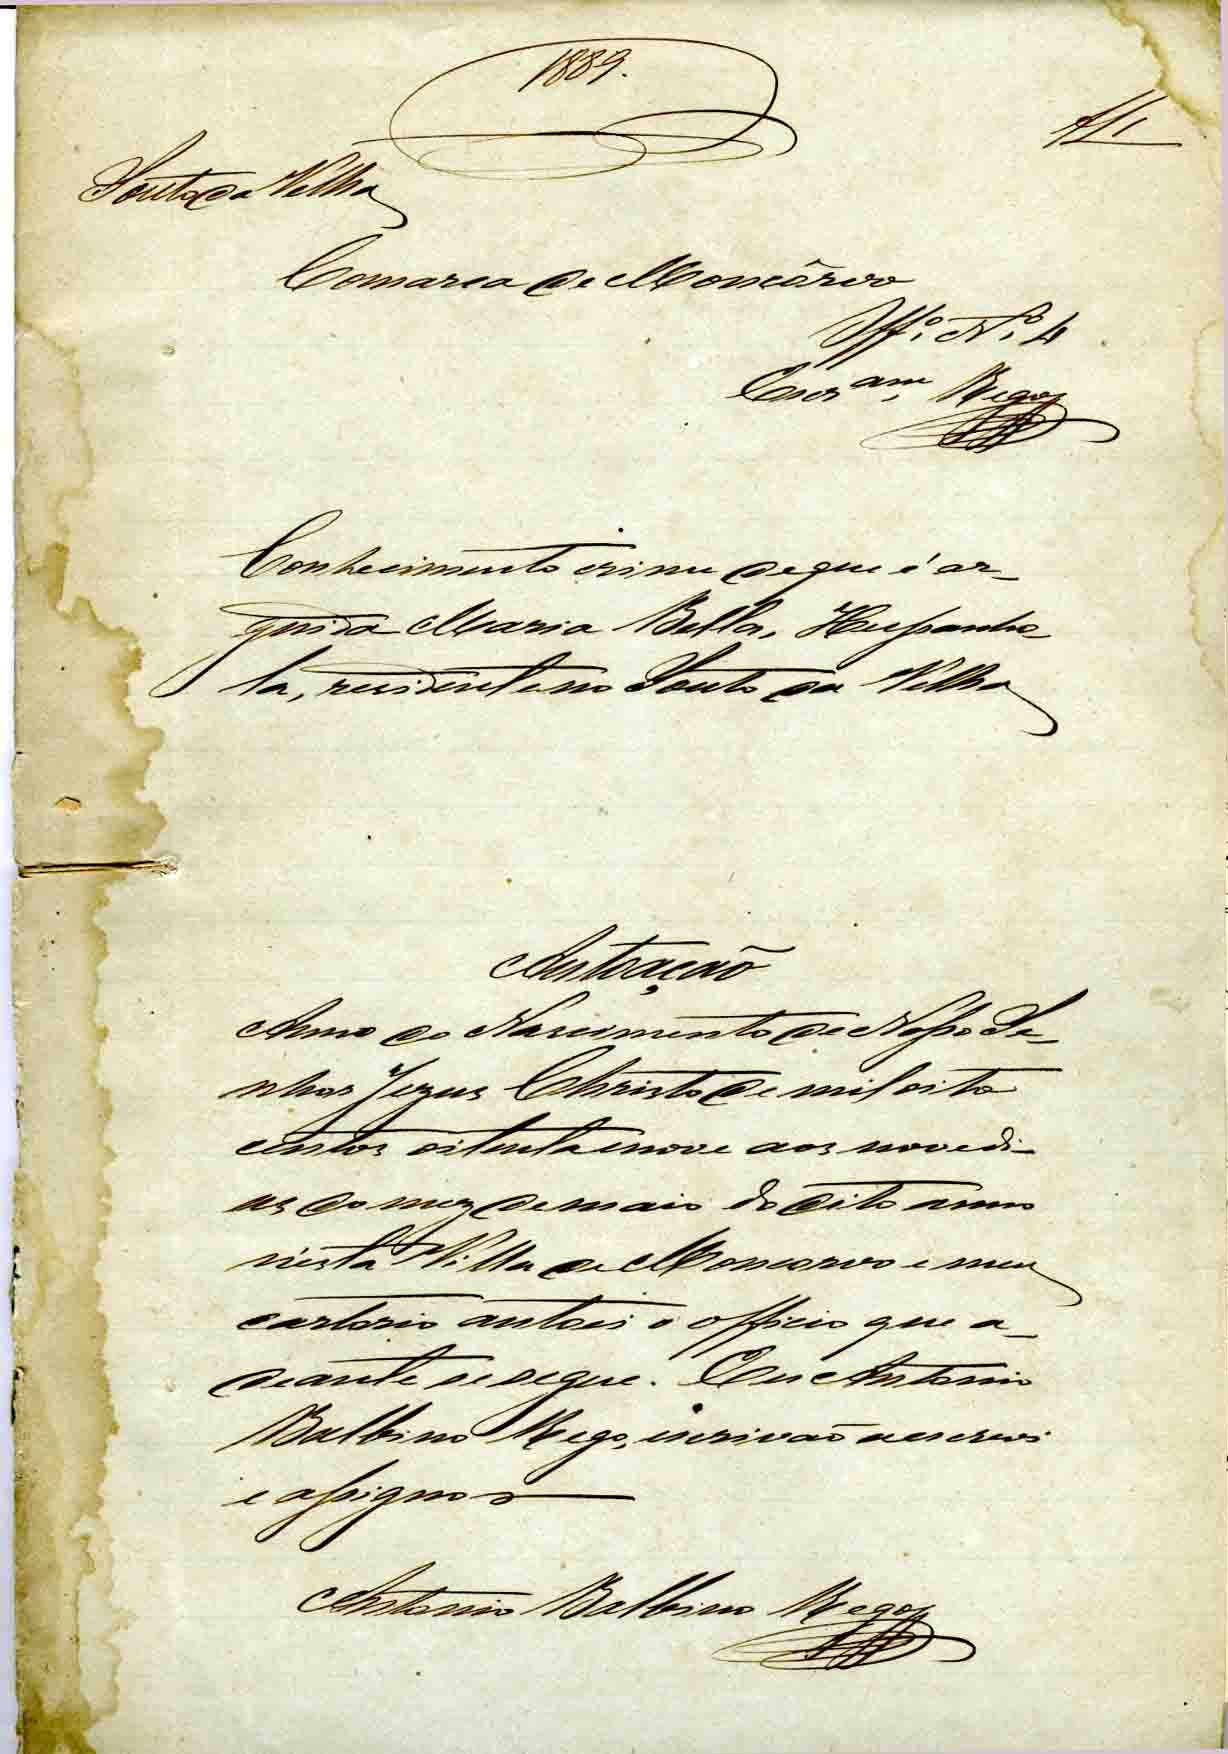 1889.
Souto da Velha
Comarca de Moncôrvo
Off.º N.º 4
Escr.am Rego
Conhecimento crime de que é ar-
guida Maria Bella, Hespanho-
la, residente no Souto da Velha
Autoação
Anno do Nascimento de Nosso Se-
nhor Jezus Christo de mil oito
centos oitenta e nove aos nove di-
as do mez de maio do dito anno
n'esta Villa de Moncorvo e meu
cartorio autoei o officio que a-
deante se segue. Eu Antonio
Balbino Rego, escrivão a escrevi
e assigno
Antonio Balbino Rego